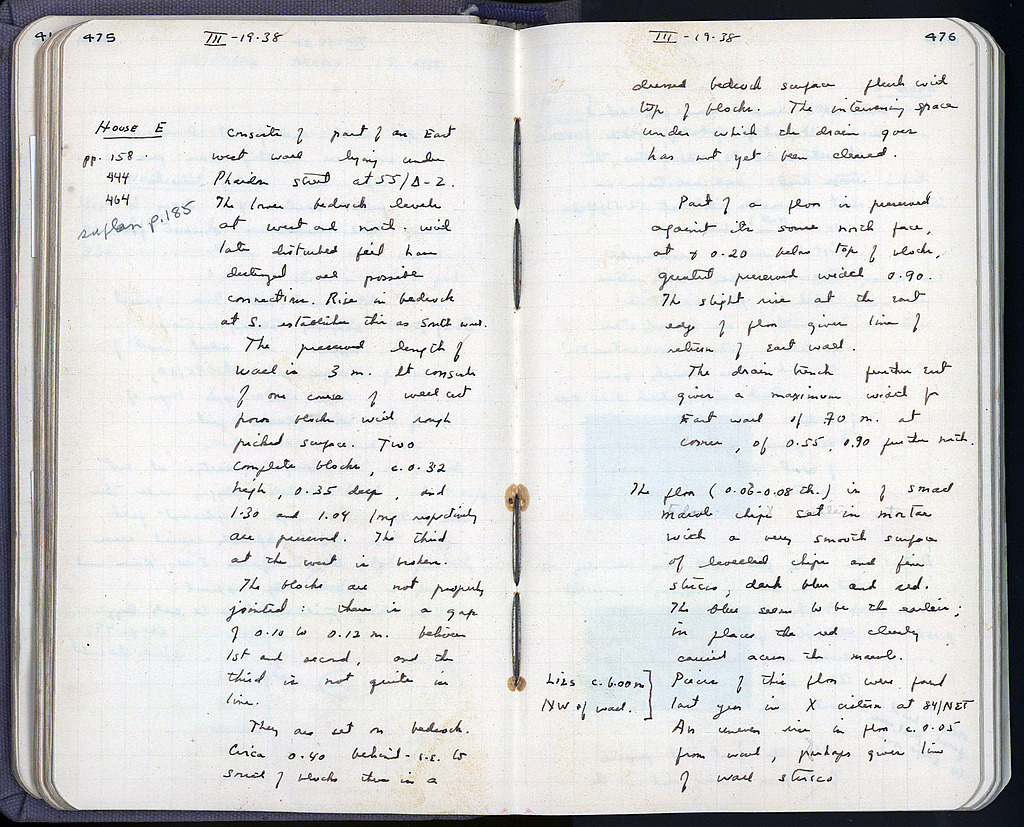 475
III-19-38
House E
pp. 158.
444
464
see plan p. 185
consists of part of an East
west wall lying under
Phaidon street at 55/Δ-2.
The lower bedrock levels
at west and north. with
late disturbed fill have
destroyed all possible
connection. Rise in bedrock
at S. establishes this as South wall.
The preserved length of
wall is 3 m. It consists
of one course of well cut
poros blocks with rough
picked surface. Two
complete blocks, c. 0.32
high, 0.35 deep, and
1.30 and 1.04 long respectively
are preserved. The third
at the west is broken.
The blocks are not properly
jointed: there is a gap
of 0.10 to 0.12 m. between
1st and second, and the
third is not quite in
line.
They are set on bedrock.
Circa 0.40 behind - i.e. to
South of blocks there is a
III-19-38
476
dressed bedrock surface flush with
top of blocks. The intervening space
under which the drain goes
has not yet been cleared.
Part of a floor is preserved
against its some north face,
at 0.20 below top of blocks,
greatest preserved width 0.90.
The slight rise at the East
edge of floor gives line of
return of East wall.
The drain trench further East
gives a maximum width for
East wall of .70 m. at
corner, of 0.55, 0.90 further north.
The floor (0.06-0.08 th.) is of small
marble chips set in mortar
with a very smooth surface
of levelled chips and fine
stucco, dark blue and red.
The blue seems to be the earlier;
in places the red clearly
carried across the marble.
Lies c. 6.00 m
NW of wall.
Pieces of this floor were found
last year in X cistern at 84/NET
An uneven rise in floor c. 0.05
from wall, perhaps gives line
of wall stucco